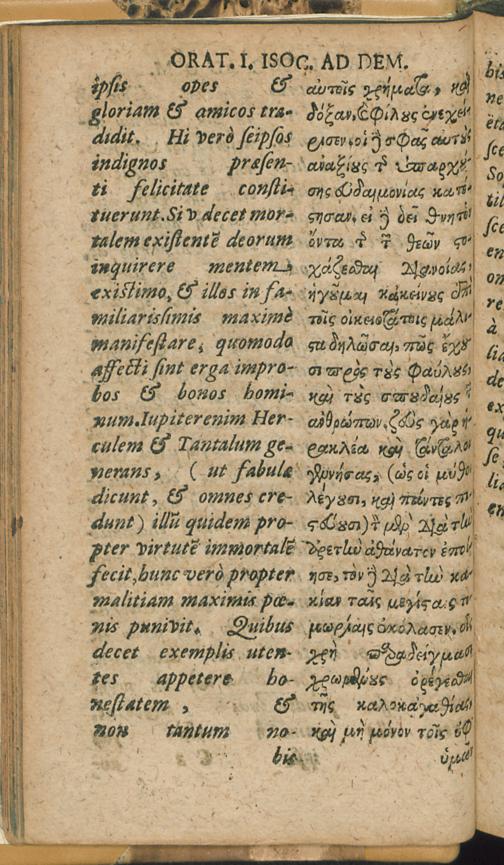 ORAT. I. ISOC. AD DEM.
ipsis opes &
gloriam & amicos tra-
didit. Hi verò seipsos
indignos præsen-
ti felicitate consti-
tuerunt. Si v̄ decet mor-
talem existentē deorum
inquirere mentem,
existimo, & illos in fa-
miliarissimis maximè
manifestare, quomodo
affecti sint erga impro-
bos & bonos homi-
num. Iupiter enim Her-
culem & Tantalum ge-
nerans, ( ut fabulæ
dicunt, & omnes cre-
dunt ) illū quidem pro-
pter virtutē immortalē
fecit, hunc verò propter
malitiam maximis pœ-
nis punivit. Quibus
decet exemplis uten-
tes appetere ho-
nestatem, &
non tantum no-
bis
αὐτοῖς χρήματα, καὶ
δόξαν, καὶ φίλους ἐνεχεί-
ρισεν. οἱ δὲ σφᾶς αὐτοὺς
ἀναξίους τῆς ὑπαρχού-
σης εὐδαιμονίας κατέ-
στησαν. εἰ δὲ δεῖ θνητὸν
ὄντα τῆς τῶν θεῶν στο-
χάζεσθαι διανοίας,
ἡγοῦμαι κἀκείνους ἐπὶ
τοῖς οἰκειοτάτοις μάλι-
στα δηλῶσαι, πῶς ἔχου-
σι πρὸς τοὺς φαύλους,
καὶ τοὺς σπουδαίους τ
ἀνθρώπων. ζεὺς γὰρ ἡ-
ρακλέα καὶ τάνταλον
γεννήσας, (ὡς οἱ μῦθοι
λέγουσι, καὶ πάντες πι-
στεύουσι) τ μὲν διὰ τὴν
ἀρετὴν ἀθάνατον ἐποί-
ησε, τὸν δὲ διὰ τὴν κα-
κίαν ταῖς μεγίσταις τι-
μωρίαις ἐκόλασεν. οἷς
χρὴ παραδείγμασι
χρωμένους ὀρέγεσθαι
τῆς καλοκαγαθίας,
καὶ μὴ μόνον τοῖς ἐφ
ὑμῶν